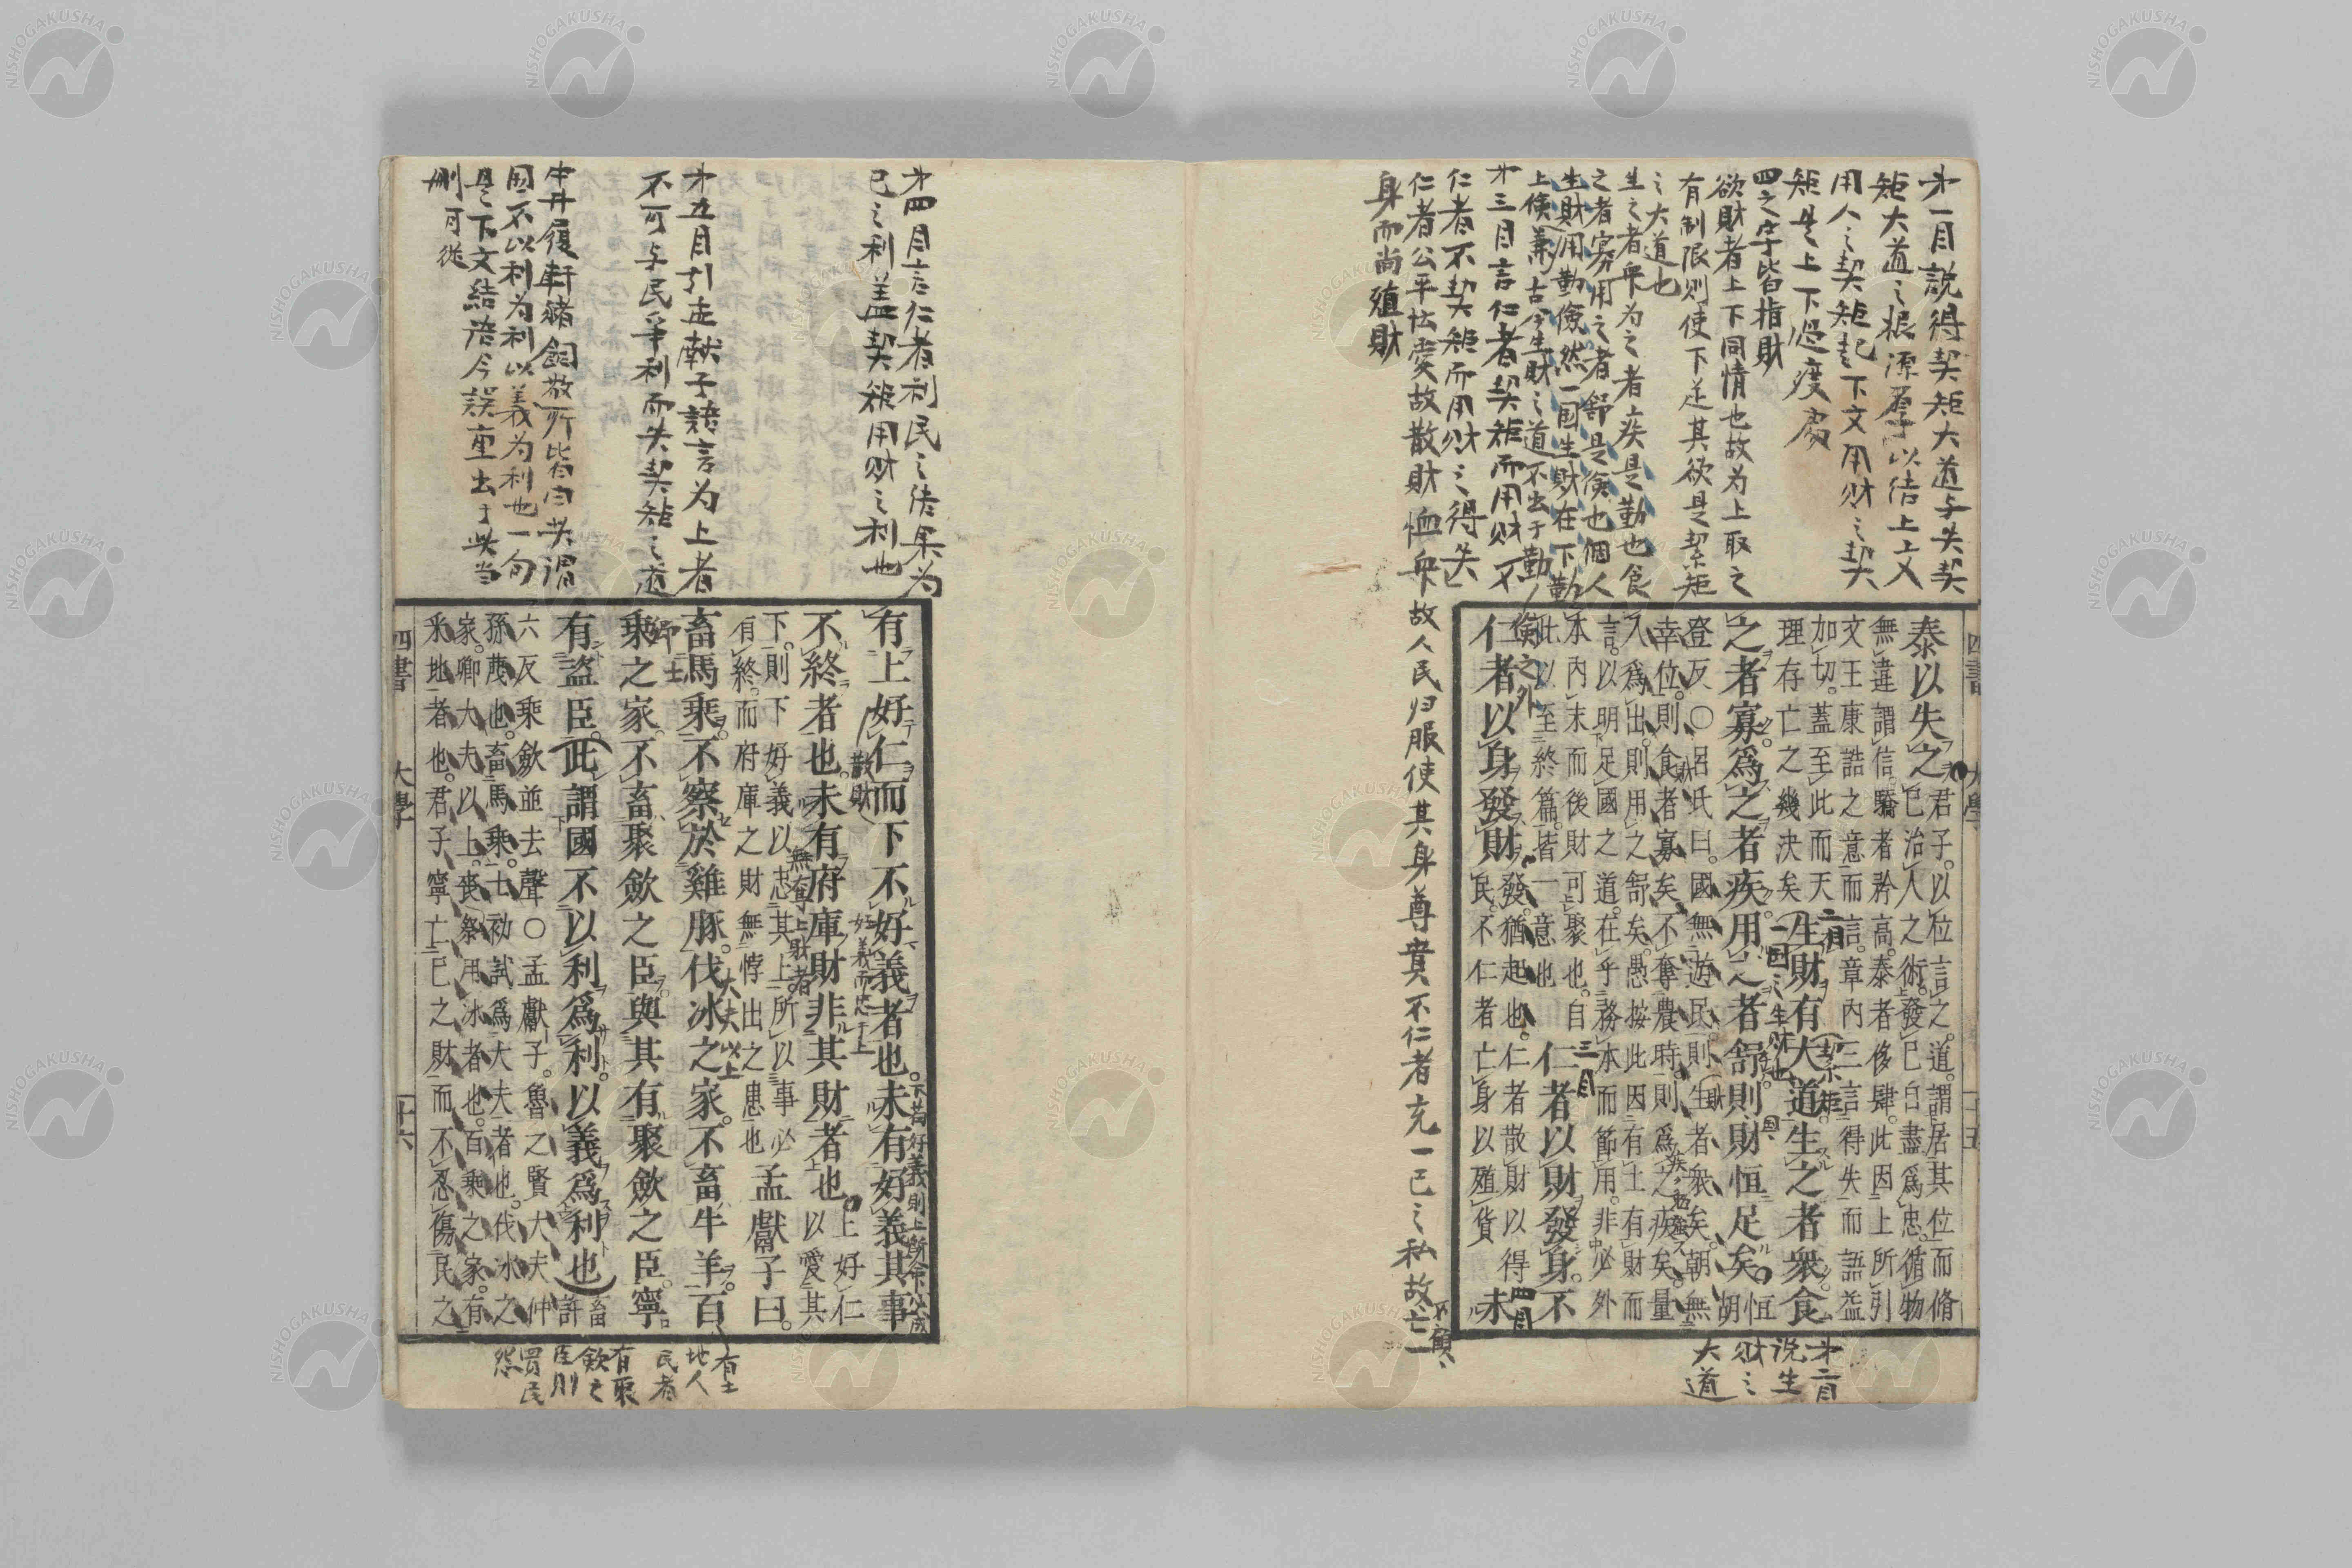 才一目説得契矩大道与失契
矩大道之根源厚以結上文
用人之契矩起下文用財之契
矩是上下過度處
四之字皆指財
欲財者上下同情也故为上取之
有制限则使下足其欲是絜矩
之大道也
生之者衆为之者疾是勤也食
之者寡用之者舒是儉也個人
生財用勤儉然一国生財在下勤
上儉兼古今生財之道不出于勤
儉之外
才三目言仁者契矩而用财不
仁者不契矩而用财之得失
仁者公平怯愛故散財恤衆故人民归服使其身尊貴不仁者充一己之私故亡
不顧
身而尚殖財
泰以失之君子以位言之道謂居其位而脩
己治人之術發己自盡爲忠循物
無違謂信驕者矜高泰者侈肆此因上所引
文王康誥之意而言章內三言得失而語益
加切蓋至此而天
理存亡之幾決矣生財有大道生之者衆食
之者寡爲之者疾用之者舒則財恒足矣恒胡
登反○呂氏曰國無遊民則生者衆矣朝無
幸位則食者寡矣不奪農時則爲之疾矣量
入爲出則用之舒矣愚按此因有土有財而
言以明足國之道在乎務本而節用非必外
本內末而後財可聚也自
此以至終篇皆一意也仁者以財發身不
仁者以身發財發猶起也仁者散財以得
民不仁者亡身以殖貨未
二目
契矩
一国之生財也
三目
四目
才二目
说生
财之
大道
四書
大學
十五
才四目言仁者利民之結果为
己之利盖契矩用财之利也
才五目引孟献子語言为上者
不可与民爭利而失契矩之道
中井履軒猪飼敬所皆曰此謂
国不以利为利以義为利也一句
是下文結语今誤重出于此当
刪可從
有上好仁而下不好義者也未有好義其事
不終者也未有府庫財非其財者也上好仁以愛其
下則下好義以忠其上所以事必
有終而府庫之財無悖出之患也孟獻子曰
畜馬乘不察於雞豚伐冰之家不畜牛羊百
乘之家不畜聚斂之臣與其有聚斂之臣寧
有盜臣此謂國不以利爲利以義爲利也畜許
六反乘斂並去聲○孟獻子魯之賢大夫仲
孫蔑也畜馬乘士初試爲大夫者也伐冰之
家卿大夫以上喪祭用冰者也百乘之家有
采地者也君子寧亡己之財而不忍傷民之
散財
好義而忠于上
下若好義則上所命必成
無奪上財者
大夫以上
卿士
有土
地人
民者
有聚
斂之
臣則
買民
怨
四書
大學
十六